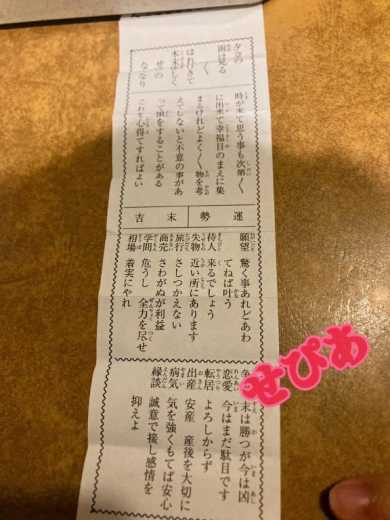 夕立の
雨は見る
く
はれゆきて
木末すゞしく
せみの
なくなり
時が来て思う事も次第〳〵
に出来て幸福目のまえに集
まるけれどよく〳〵物を考
えてしないと不意の事があ
って損をすることがある
これを心得てすればよい
運勢
末吉
願望 驚く事あれどあわ
てねば叶う
待人 来るでしょう
失物 近い所にあります
旅行 さしつかえない
商売 さわがぬが利益
学問 危うし 全力を尽せ
相場 着実にやれ
争 末は勝つが今は凶
恋愛 今はまだ駄目です
転居 よろしからず
出産 安産 産後を大切に
病気 気を強くもてば安心
縁談 誠意で接し感情を
抑えよ
せぴあ